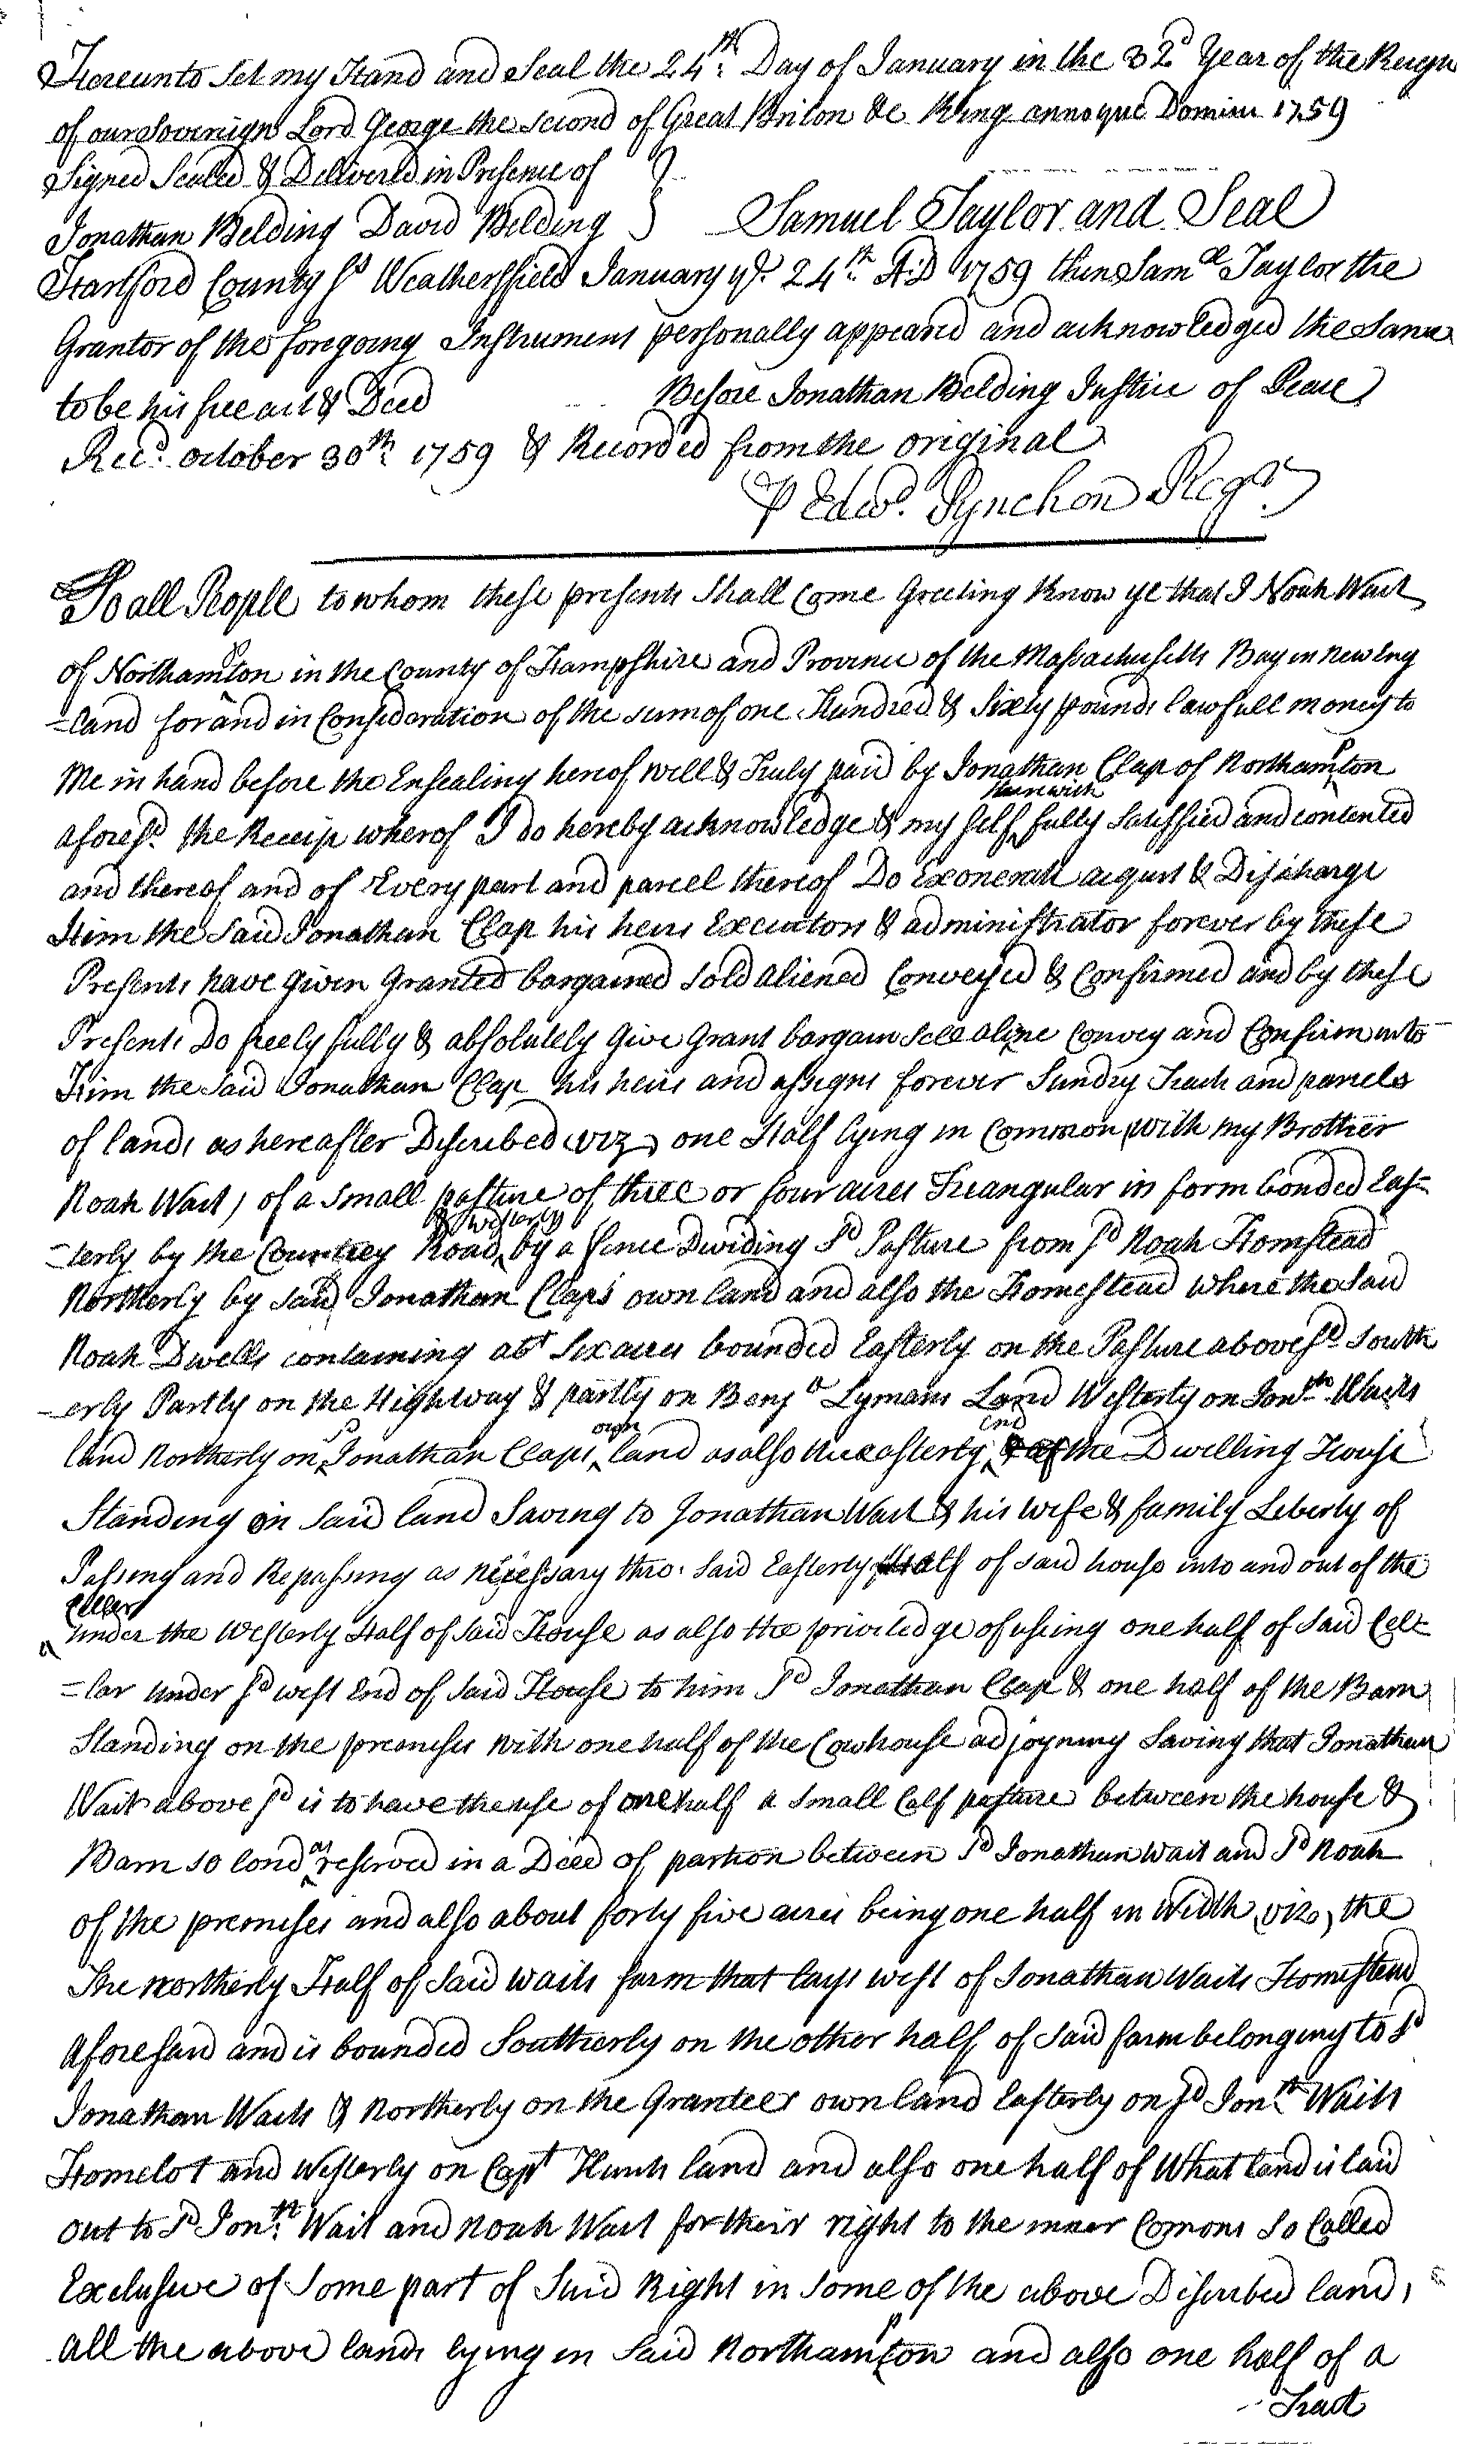 Hereunto set my Hand and Seal the 24th Day of January in the 32d Year of the Reign
of our Soverign Lord George the second of Great Briton &c King annoque Domini 1759
Signed Sealed & Delivered in Presence of
Jonathan Belding David Belding } Samuel Taylor and Seal
Hartford County Ss Weathersfield January ye 24th A:D 1759 then Samel Taylor the
Grantor of the foregoing Instrument personally appeared and acknowledged the Same
to be his free act & Deed Before Jonathan Belding Justice of Peace
Recd October 30th 1759 & Recorded from the original
P Edwd Pynchon Regr
To all People to whom these presents Shall Come Greeting Know ye that I Noah Wait
of Northampton in the County of Hampshire and Province of the Massachusetts Bay in New Eng
=land for and in Consideration of the sum of one Hundred & Sixty pounds lawfull money to
Me in hand before the Ensealing hereof well & Truly paid by Jonathan Clap of Northampton
aforesd the Receip wherof I do hereby acknowledge & my self therewith fully Satisfied and contented
and thereof and of Every part and parcel thereof Do Exonerate acquit & Discharge
Him the Said Jonathan Clap his heirs Executors & administrator forever by these
Presents have given Granted bargained Sold aliened Conveyed & Confirmed and by these
Presents Do freely fully & absolutely Give Grant bargain Sell aline Convey and Confirm unto
Him the Said Jonathan Clap his heirs and assigns forever Sundry Tracts and parcels
of lands as hereafter Discribed viz, one Half lying in Common (with my Brother
Noah Wait) of a Small pasture of three or four acres Treangular in form bonded Eas=
=terly by the Country Road & westerly by a fence Dividing Sd Pasture from sd Noah Homstead
Northerly by Said Jonathan Claps own land and also the Homestead where the Said
Noah Dwells containing abt Six acres bounded Easterly on the Pasture abovesd South
=erly Partly on the Highway & partly on Benja Lymans Land Westerly on Jonth Waits
land Northerly on sd Jonathan Claps own land as also the easterly end of the Dwelling House
Standing on Said land Saving to Jonathan Wait & his wife & family Leberty of
Passing and Repassing as necessary thro. Said Easterly Half of said house into and out of the
Celler under the Westerly Half of Said House as also the priviledge of using one half of Said Cel=
=lar under sd west End of Said House to him Sd Jonathan Clap & one half of the Barn
Standing on the premises with one half of the Cowhouse adjoyning Saving that Jonathan
Wait above sd is to have the use of one half a Small Calf pasture between the house &
Barn so lond as reserved in a Deed of partion between Sd Jonathan Wait and Sd Noah
of the premises and also about forty five acres being one half in Width, viz, the
The northerly Half of Said waits farm that lays west of Jonathan Waits Homstead
aforesaid and is bounded Southerly on the other half of Said farm belonging to Sd
Jonathan Waits & Northerly on the Grantees own land Easterly on sd Jonth Waits
Homelot and Westerly on Capt Hunts land and also one half of What land is laid
out to Sd Jonth Wait and Noah Wait for their right to the inner Comons So Called
Exclusive of Some part of Said Right in Some of the above Discribed land,
all the above lands lying in Said Northampton and also one half of a
Tract